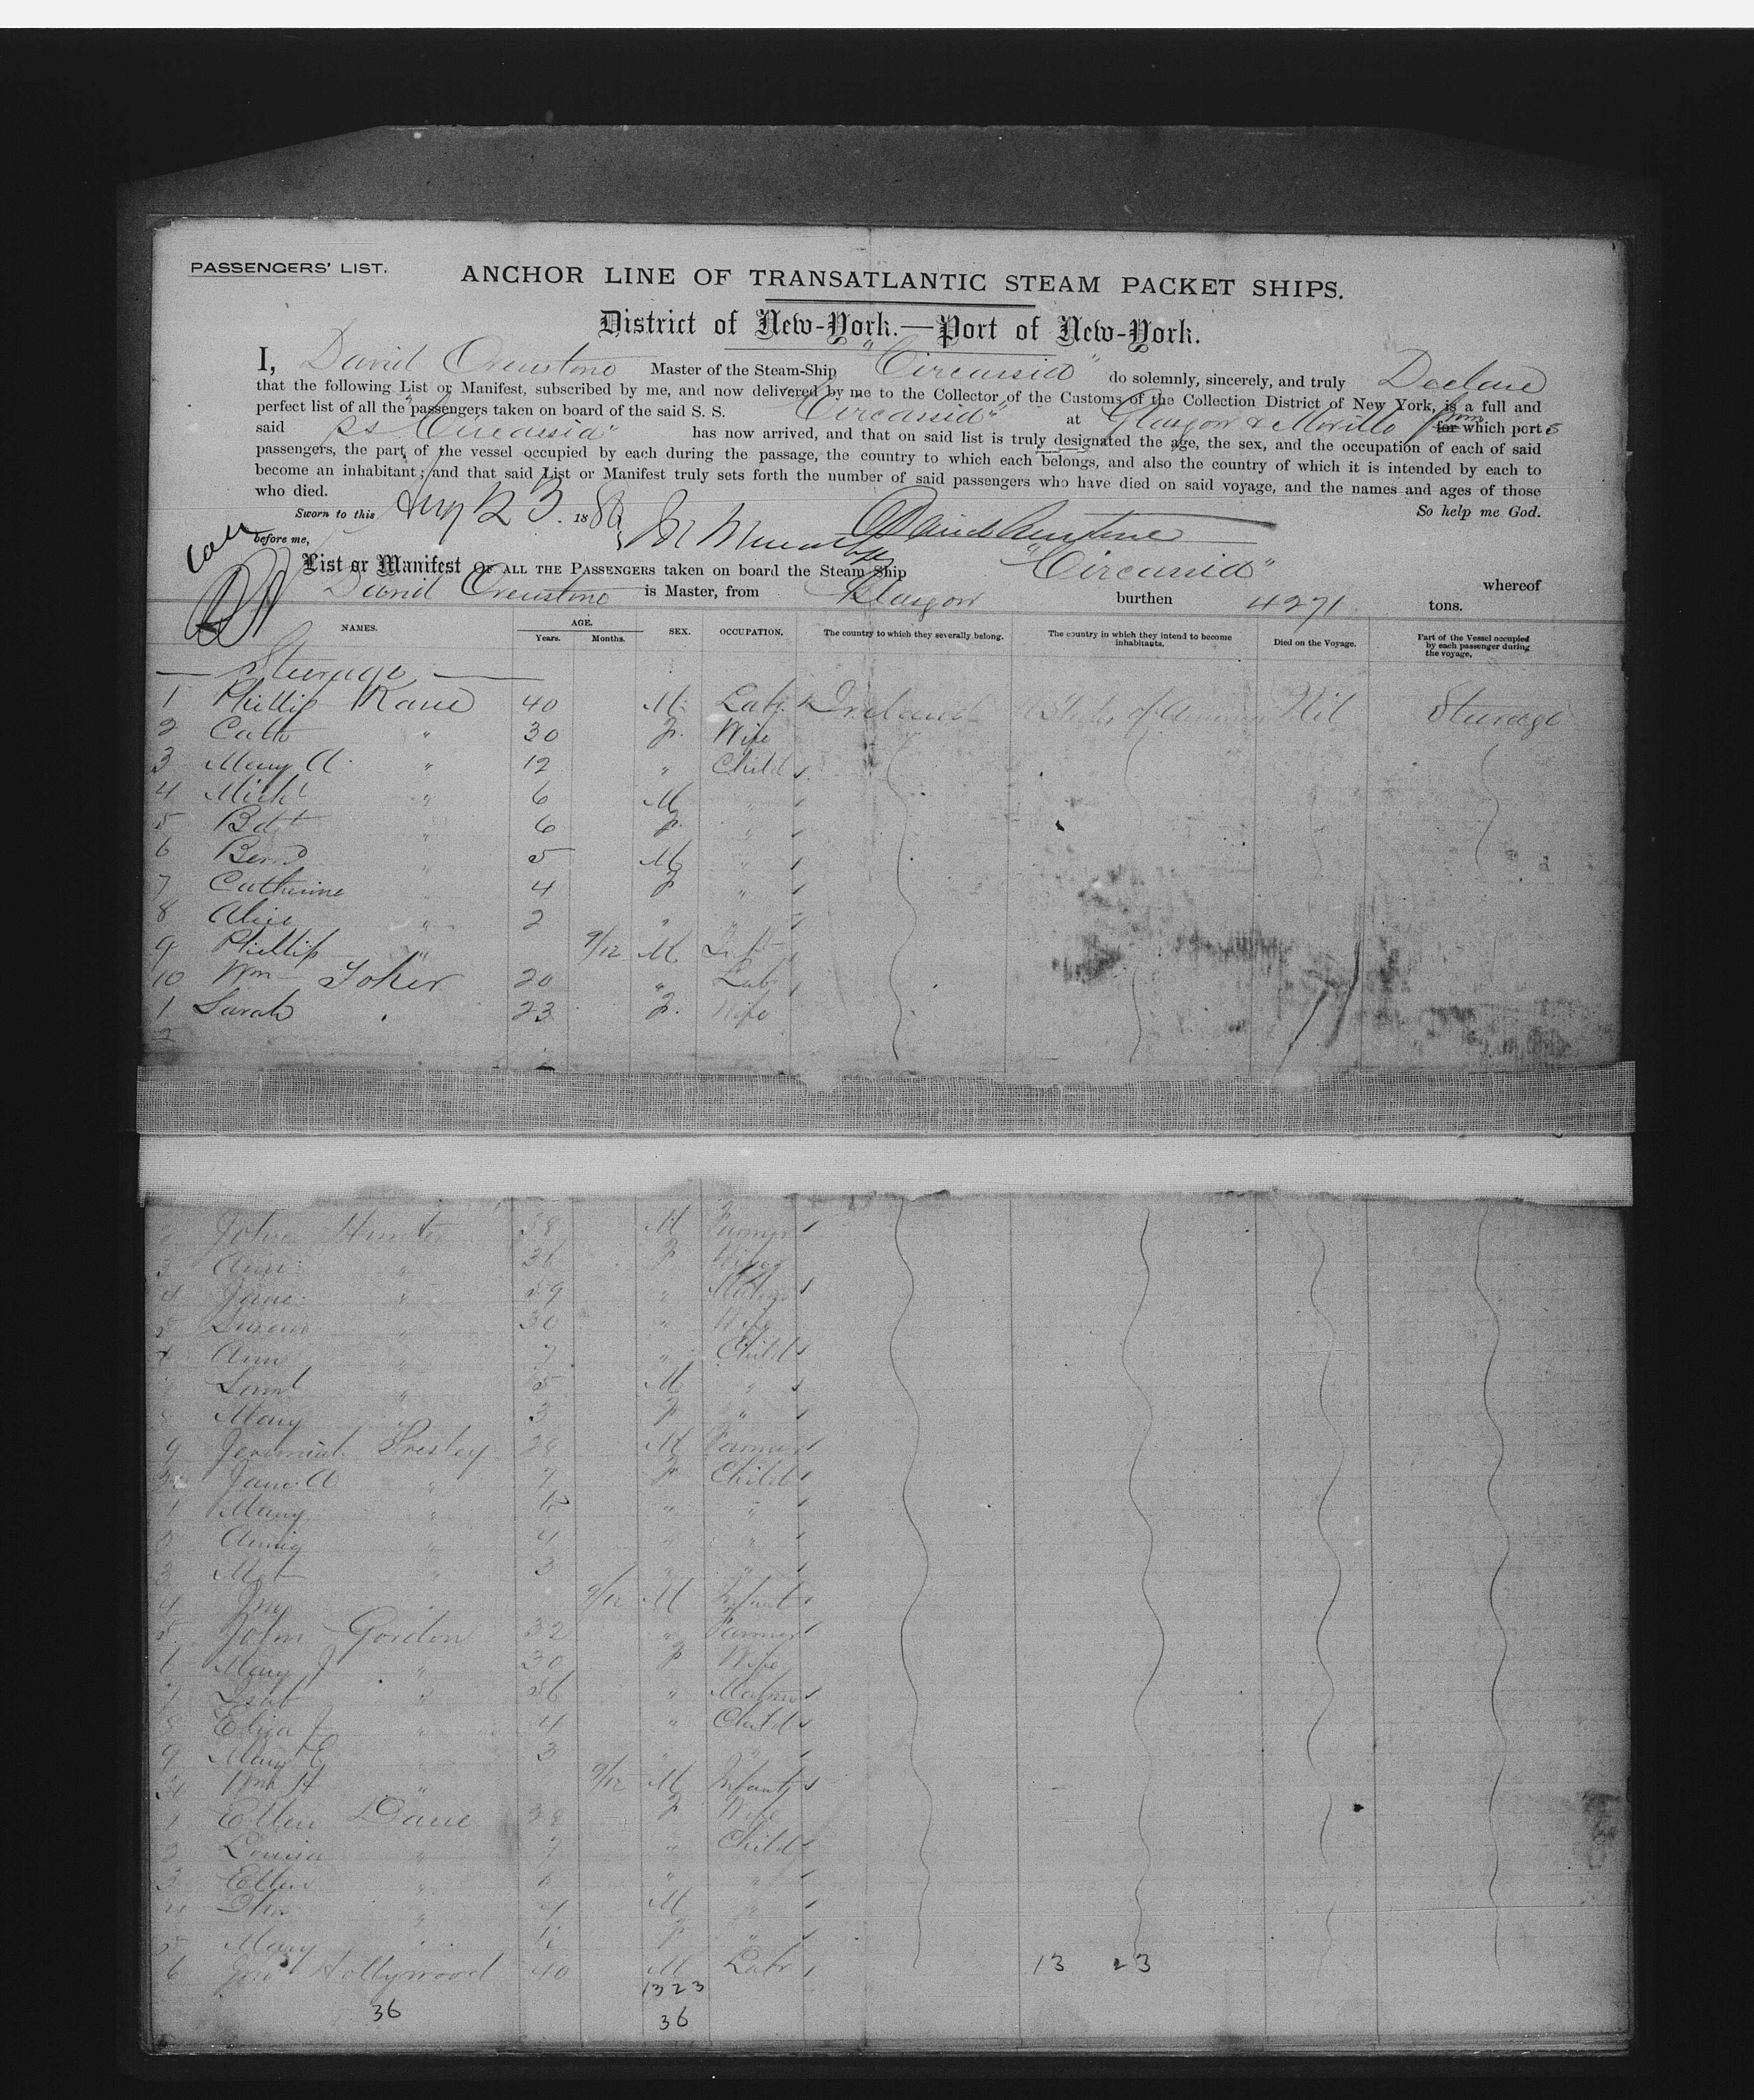 PASSENGERS' LIST.
ANCHOR LINE OF TRANSATLANTIC STEAM PACKET SHIPS.
District of New-York.—Port of New-York.
I, David Master of the Steam-Ship "Circassia" do solemnly, sincerely, and truly Declare
that the following List or Manifest, subscribed by me, and now delivered by me to the Collector of the Customs of the Collection District of New York, is a full and
perfect list of all the passengers taken on board of the said S. S. "Circassia" at Glasgow & Moville from
said SS "Circassia" has now arrived, and that on said list is truly designated the age, the sex, and the occupation of each of said for which ports
passengers, the part of the vessel occupied by each during the passage, the country to which each belongs, and also the country of which it is intended by each to
become an inhabitant; and that said List or Manifest truly sets forth the number of said passengers who have died on said voyage, and the names and ages of those
who died. So help me God.
Sworn to this Aug 23. 188
before me,
List or Manifest OF ALL THE PASSENGERS taken on board the Steam Ship "Circassia" whereof
David is Master, from Glasgow burthen 4271 tons.
NAMES. AGE. Years. Months. SEX. OCCUPATION. The country to which they severally belong. The country in which they intend to become inhabitants. Died on the Voyage. Part of the Vessel occupied by each passenger during the voyage.
Steerage
1 Phillip Kane 40 M. Labr Ireland Nil Steerage
2 Cath " 30 F. Wife
3 Mary A. " 12 " Child
4 Michl " 6 M "
5 Bdgt " 6 F. "
6 Bernd " 5 M "
7 Catherine " 4 F "
8 Alice " 2 " "
9 Phillip " 9/12 M Inft
10 Wm Toher 20 " Lab
1 Sarah 23 F. Wife
2
2 John Hunter 38 M Farmer
3 Ann " 36 F Wife
4 Jane " 59 " Matron
5 Susan " 30 " Wife
Ann " 7 " Child
Saml " 5 M "
Mary " 3 F "
9 Jeremiah Presley 28 M Farmer
Jane A " 7 F Child
1 Mary " 5 " "
Annie " 4 " "
3 Mgt " 3 " "
4 Jno " 9/12 M Infant
5 John Gordon 32 " Farmer
6 Mary J " 30 F Wife
7 Isab " 56 " Matron
8 Eliza J " 4 " Child
9 Mary E " 3 " "
Wm H " 9/12 M Infant
1 Ellen Dane 28 F Wife
2 Louisa " 7 " Child
3 Ellen " 6 " "
4 " 4 M "
5 Mary " F "
6 Hollywood 40 M Labr 13 23
13 23
36 36